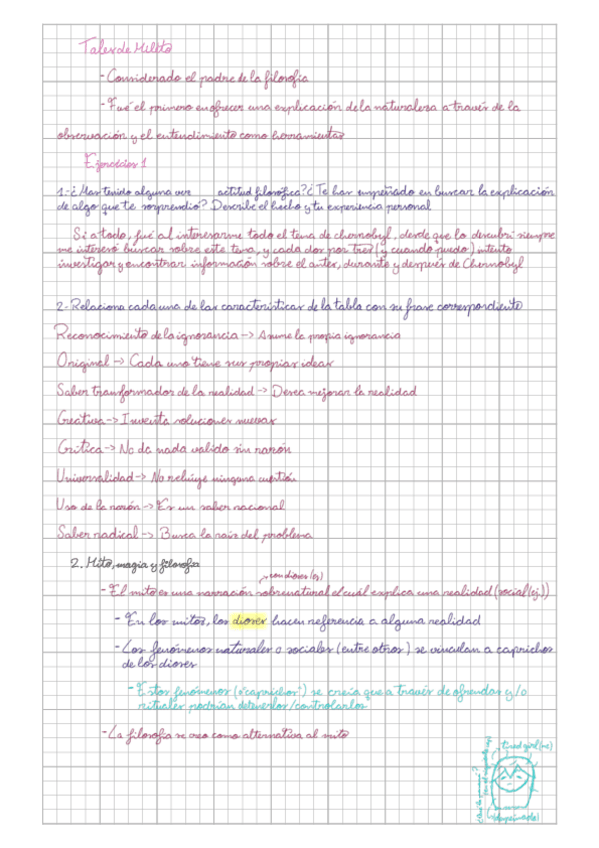 Tales de Mileto
- Considerado el padre de la filosofía
- Fué el primero en ofrecer una explicación de la naturaleza a través de la
observación y el entendimiento como herramientas
Ejercicios 1
1.- ¿Has tenido alguna vez actitud filosófica? ¿Te has empeñado en buscar la explicación
de algo que te sorprendio? Describe el hecho y tu experiencia personal
Si a todo, fué al interesarme todo el tema de chernobyl, desde que lo descubrí siempre
me interesó buscar sobre este tema, y cada dos por tres (y cuando puedo) intento
investigar y encontrar información sobre el antes, durante y después de Chernobyl
2.- Relaciona cada una de las características de la tabla con su frase correspondiente
Reconocimiento de la ignorancia -> Asume la propia ignorancia
Original -> Cada uno tiene sus propias ideas
Saber transformador de la realidad -> Desea mejorar la realidad
Creativa -> Inventa soluciones nuevas
Crítica -> No da nada valido sin razón
Universalidad -> No rehúye ninguna cuestión
Uso de la razón -> Es un saber racional
Saber radical -> Busca la raíz del problema
2. Mito, magia y filosofía
con dioses (ej)
- El mito es una narración sobrenatural el cuál explica una realidad (social (ej.))
- En los mitos, los dioses hacen referencia a alguna realidad
- Los fenómenos naturales o sociales (entre otros) se vinculan a caprichos
de los dioses
- Estos fenómenos (o "caprichos") se creía que a través de ofrendas y/o
rituales podrían detenerlos/controlarlos
- La filosofía se creo como alternativa al mito
tired girl (me)